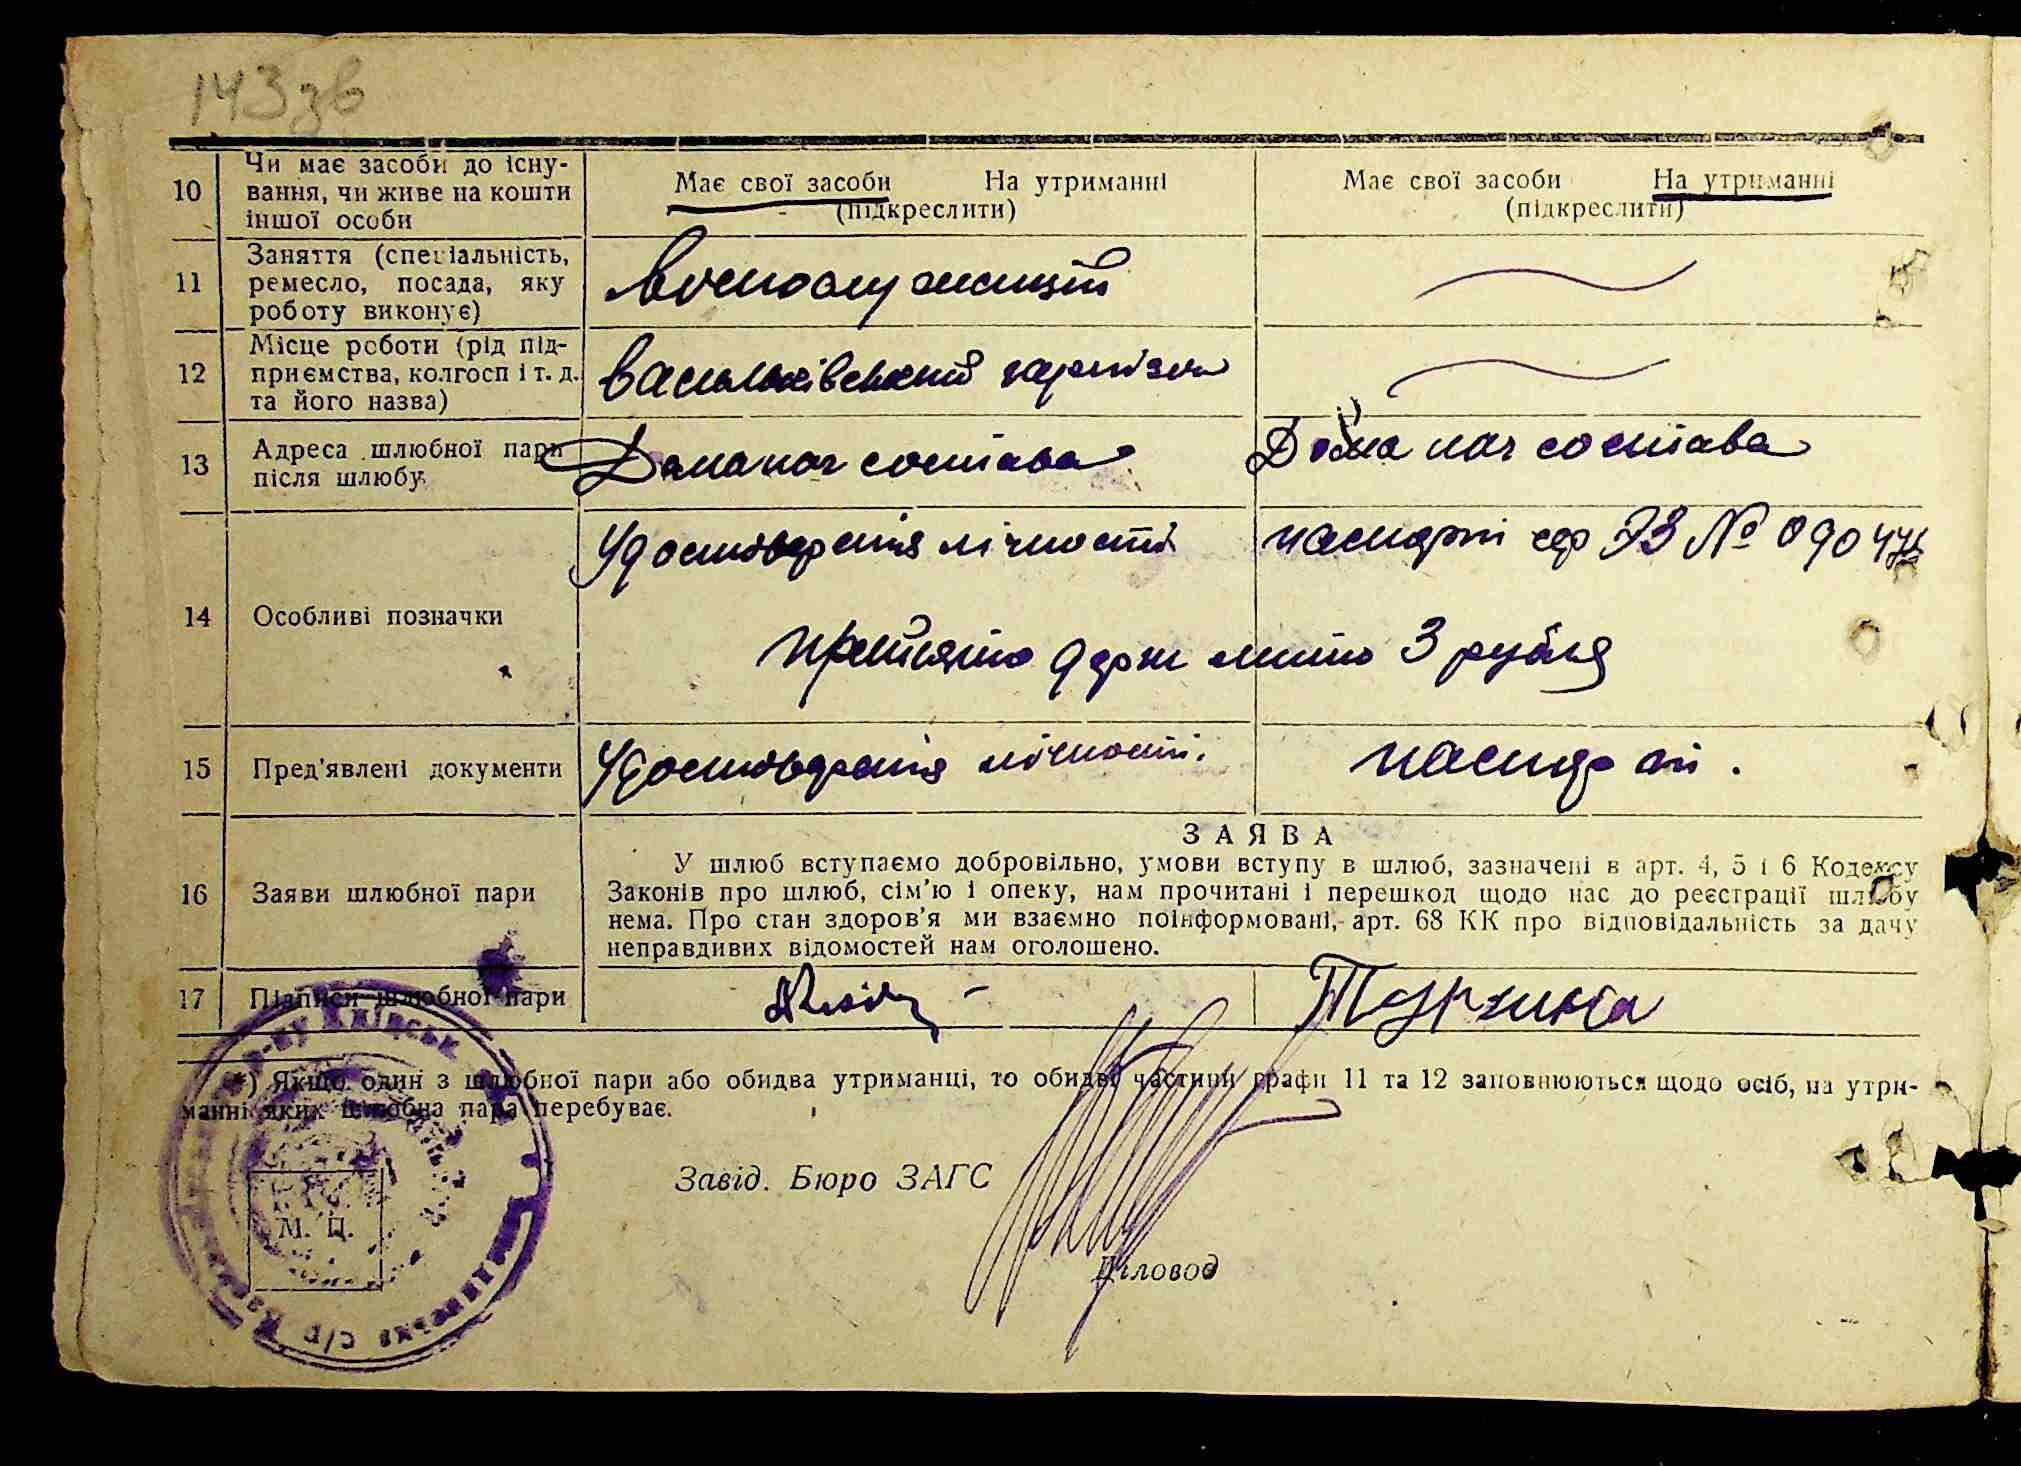 143зв
10 Чи має засоби до існу-
вання, чи живе на кошти
іншої особи
Має свої засоби На утриманні
(підкреслити)
Має свої засоби На утриманні
(підкреслити)
11 Заняття (спеціальність,
ремесло, посада, яку
роботу виконує)
Воєнослужащий
12 Місце роботи (рід під-
приємства, колгосп і т. д.
та його назва)
Васильківський гарнізон
13 Адреса шлюбної пари
після шлюбу
Дома нач состава
Дома нач состава
14 Особливі позначки
Удостоверенія лічності
паспорт сер ЭЗ №
прийнято держ мито 3 рубля
15 Пред'явлені документи
Удостоверенія лічності.
паспорт.
16 Заяви шлюбної пари
ЗАЯВА
У шлюб вступаємо добровільно, умови вступу в шлюб, зазначені в арт. 4, 5 і 6 Кодексу
Законів про шлюб, сім'ю і опеку, нам прочитані і перешкод щодо нас до реєстрації шлюбу
нема. Про стан здоров'я ми взаємно поінформовані, арт. 68 КК про відповідальність за дачу
неправдивих відомостей нам оголошено.
17 Підписи шлюбної пари
*) Якщо один з шлюбної пари або обидва утриманці, то обидві частини графи 11 та 12 заповнюються щодо осіб, на утри-
манні яких шлюбна пара перебуває.
Завід. Бюро ЗАГС
М. П.
Діловод